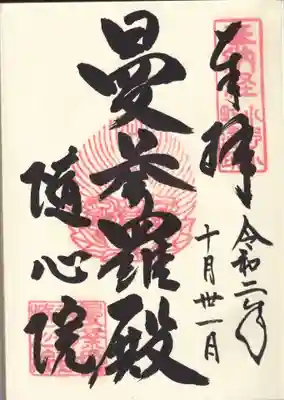 奉拝
令和二年
十月卅一日
曼荼羅殿
隨心院